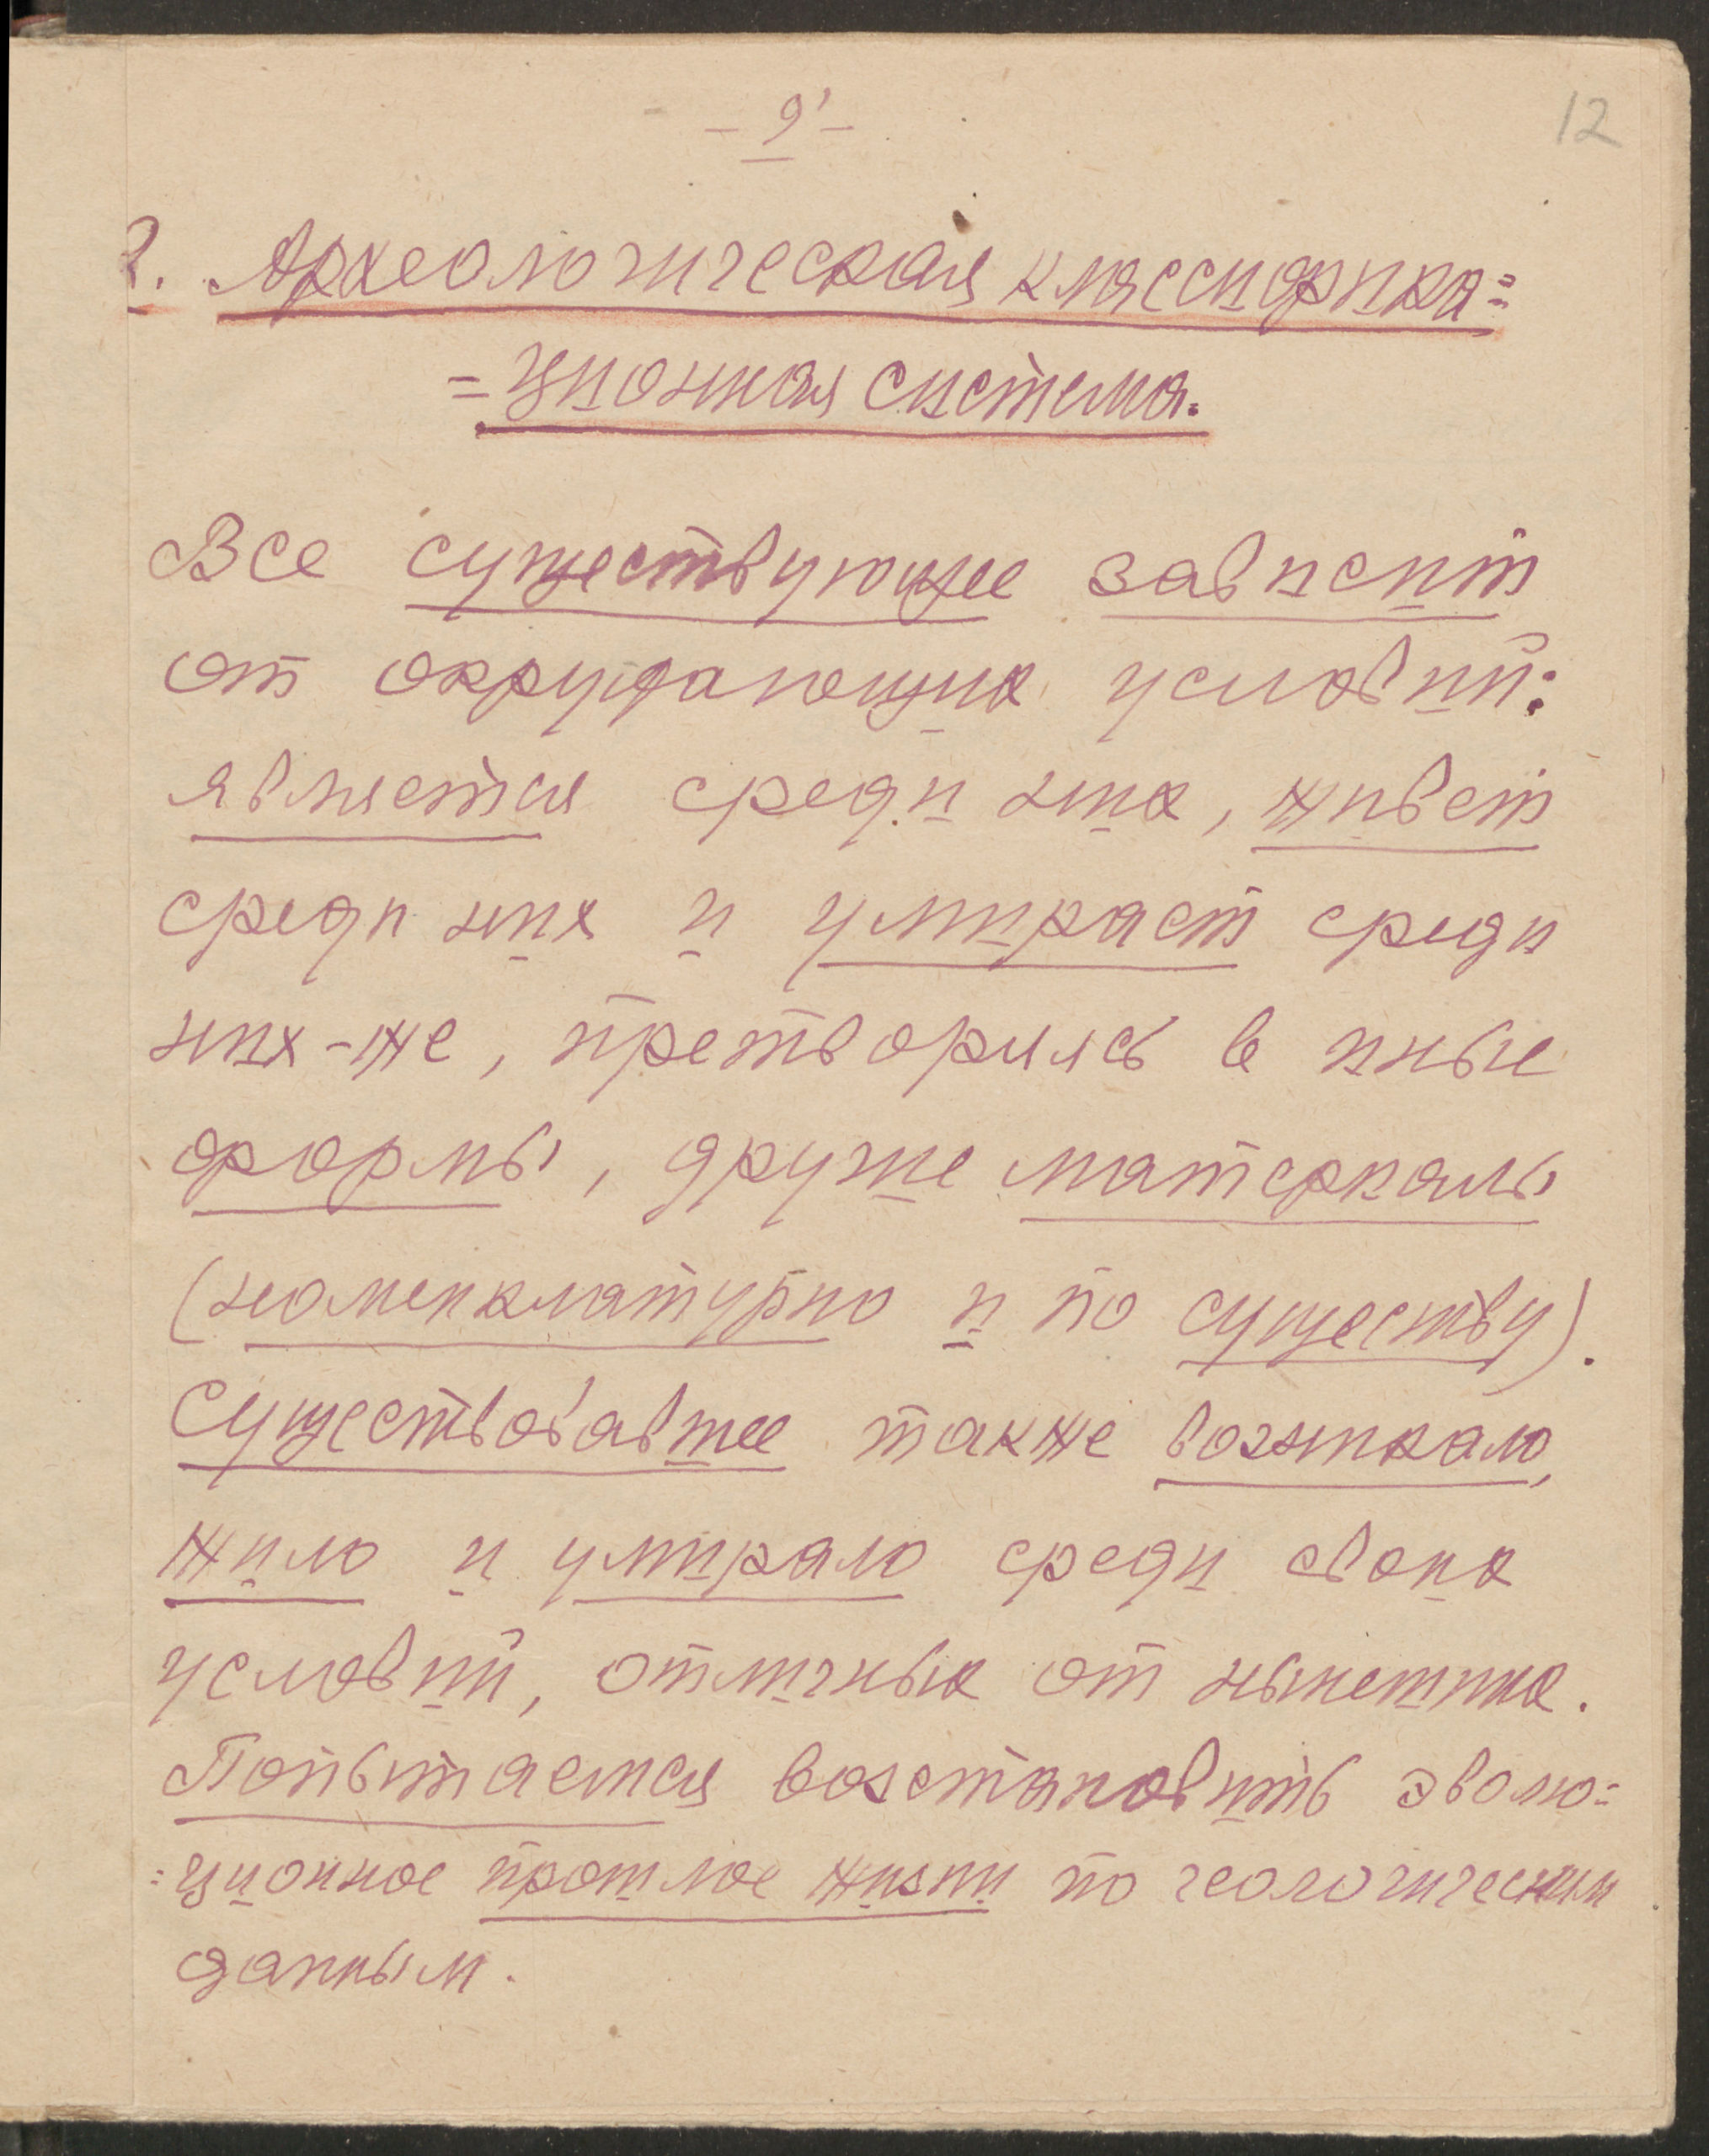 - 9' -
12
2. Археологическая классифика=
= ционная система.
Все существующее зависит
от окружающих условий:
является среди них, живет
среди них и умирает среди
них-же, претворяясь в иные
формы, другие материалы
(номенклатурно и по существу).
Существовавшее также возникало,
жило и умирало среди своих
условий, отличных от нынешних.
Попытаемся возстановить эволю=
=ционное прошлое жизни по геологическим
данным.